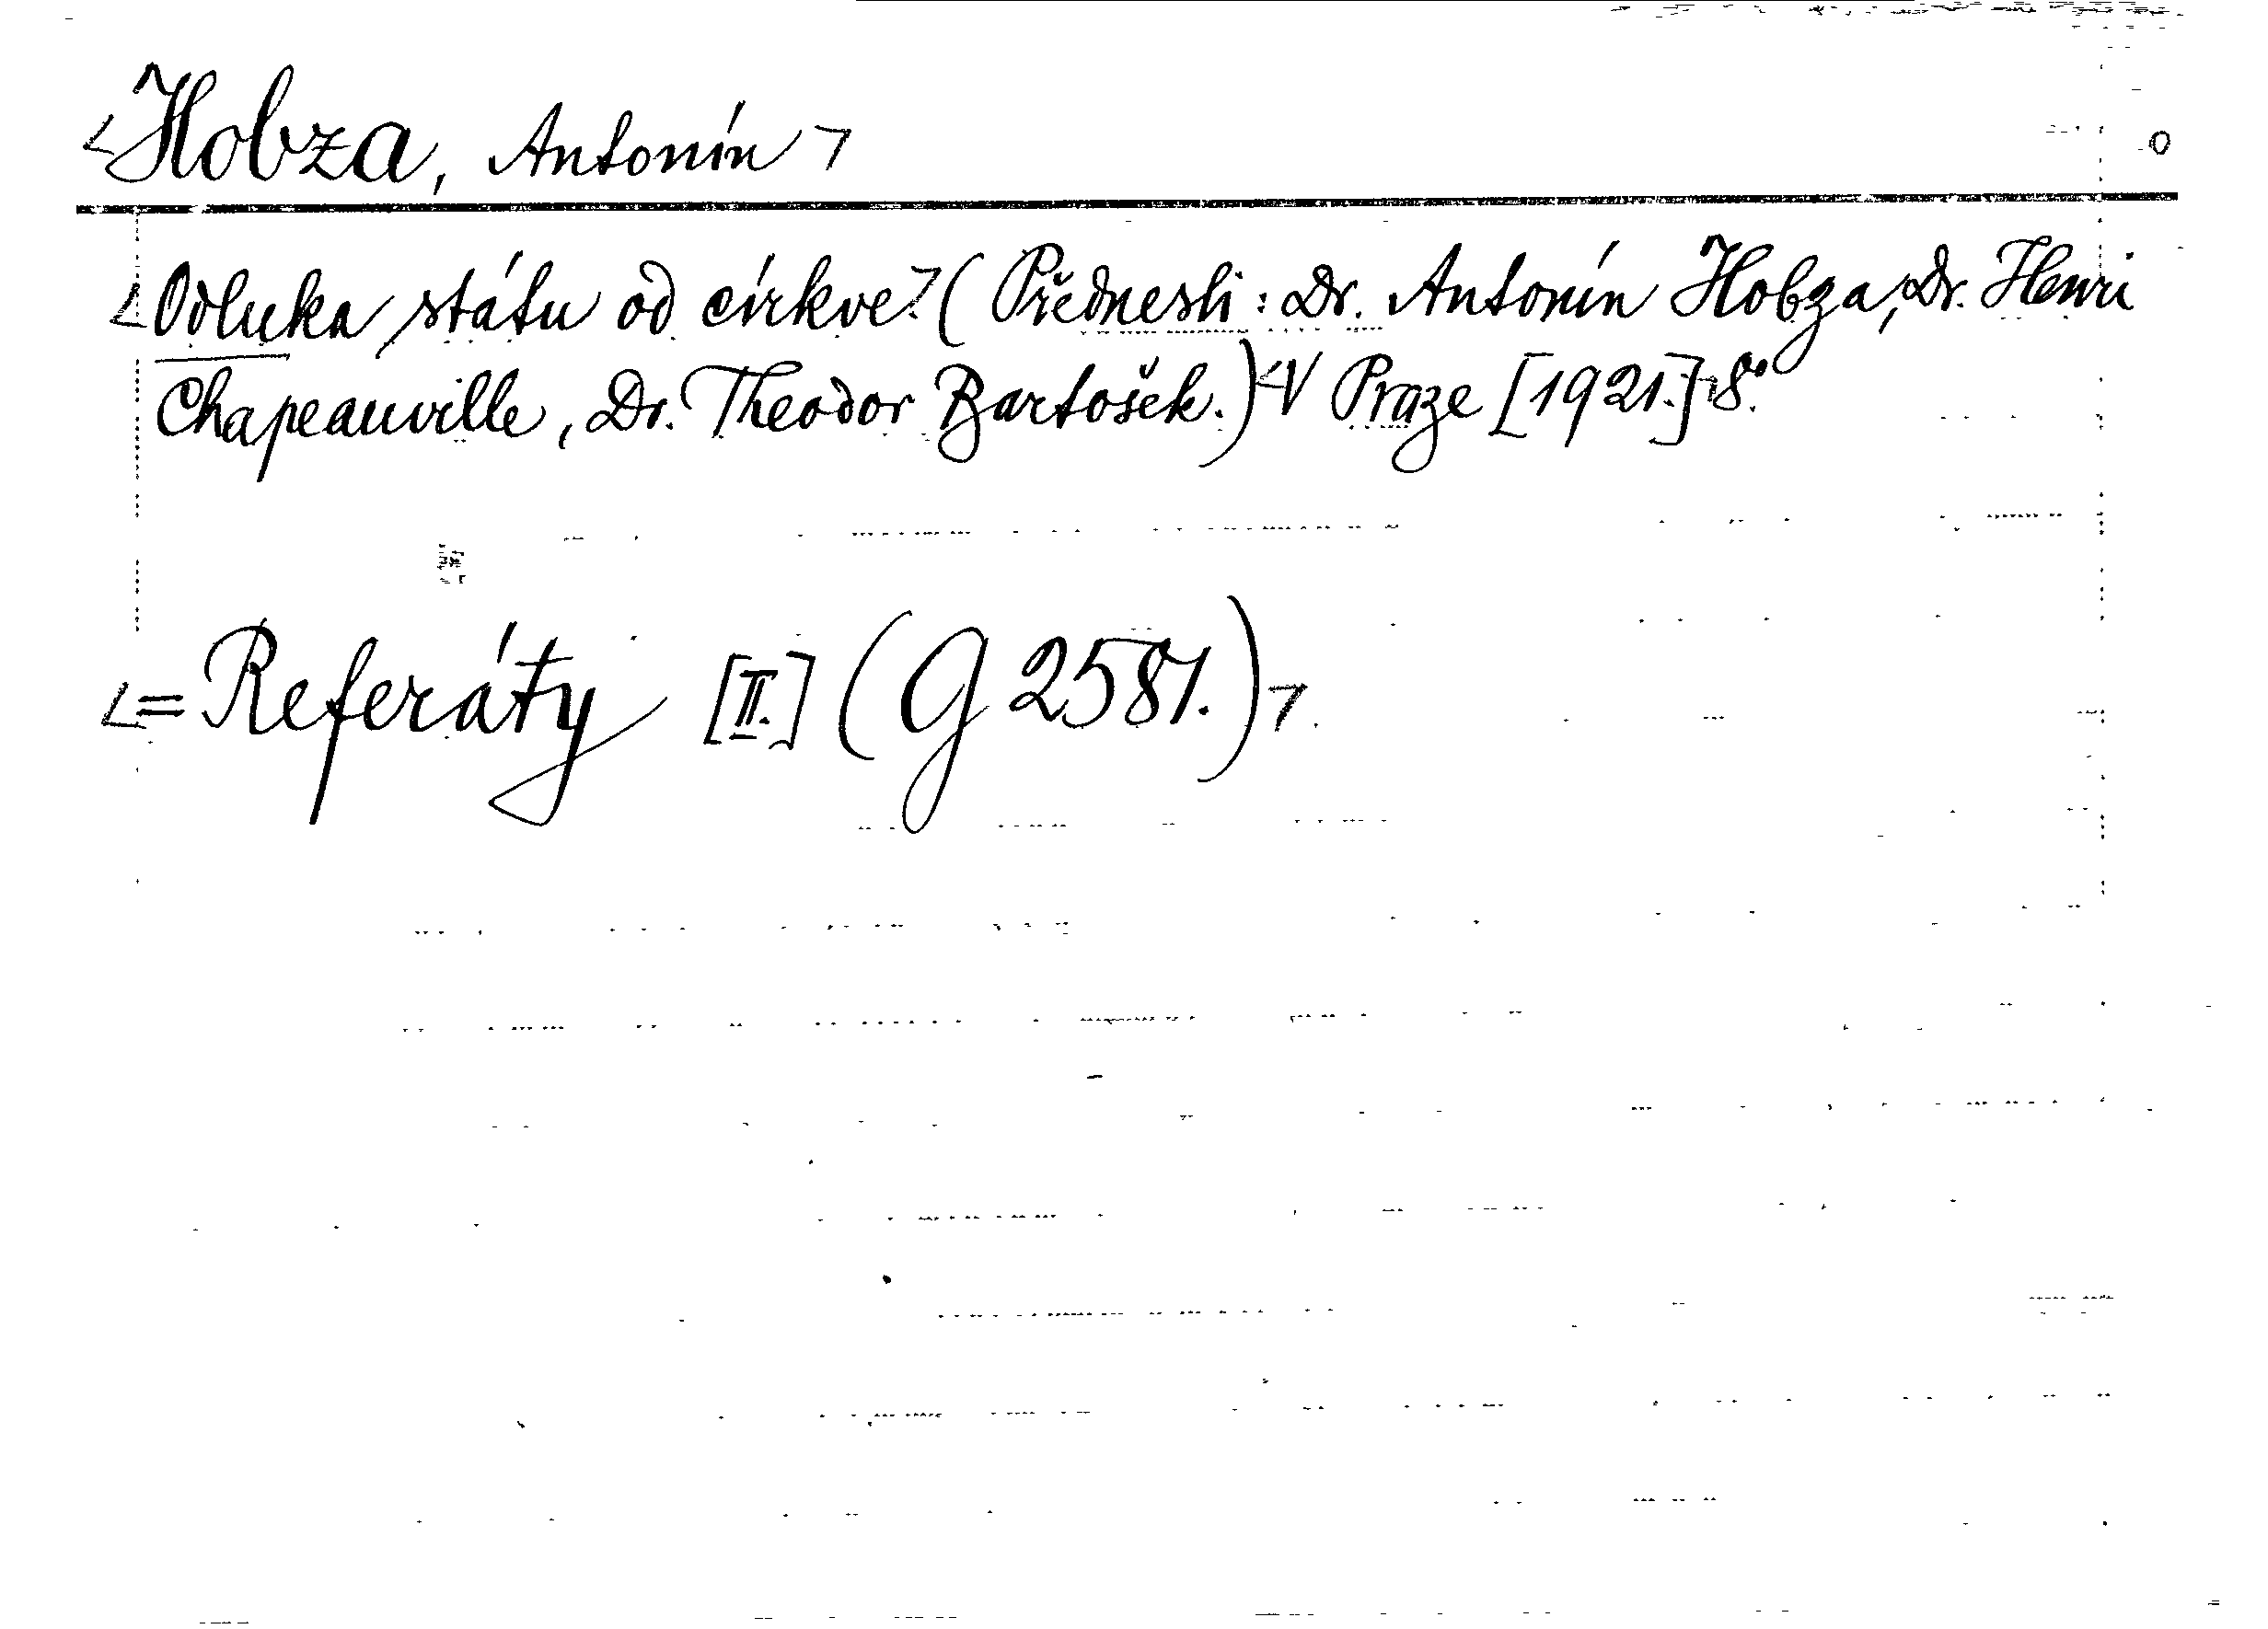 <Hobza, Antonín> o
<Odluka státu od církve.> (Přednesli: Dr. Antonín Hobza, Dr. Henri
Chapeauville, Dr. Theodor Bartošek.) <V Praze [1921.]> 8°.
<= Referáty [II.] (G 2581.)>